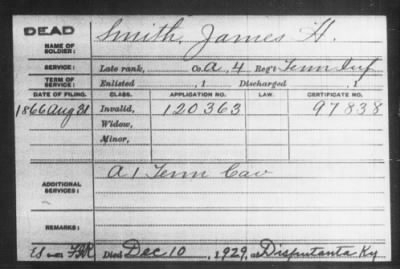 DEAD
NAME OF SOLDIER: Smith, James H.
SERVICE: Late rank, Co. A, 4 Reg't Tenn Inf
TERM OF SERVICE: Enlisted , 1 Discharged , 1
DATE OF FILING. CLASS. APPLICATION NO. LAW. CERTIFICATE NO.
1866 Aug 31 Invalid, 120363 97838
Widow,
Minor,
ADDITIONAL SERVICES: A 1 Tenn Cav
REMARKS:
Died Dec 10, 1929, at Disputanta Ky